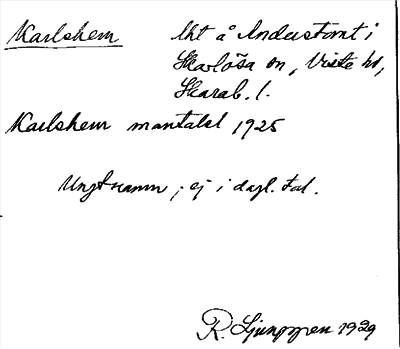 Karlshem lht å Anderstomt i
Skarlösa sn, Viste hd,
Skarab. l.
Karlshem mantalsl 1925
Ungt namn; ej i dagl. tal.
R. Ljunggren 1929